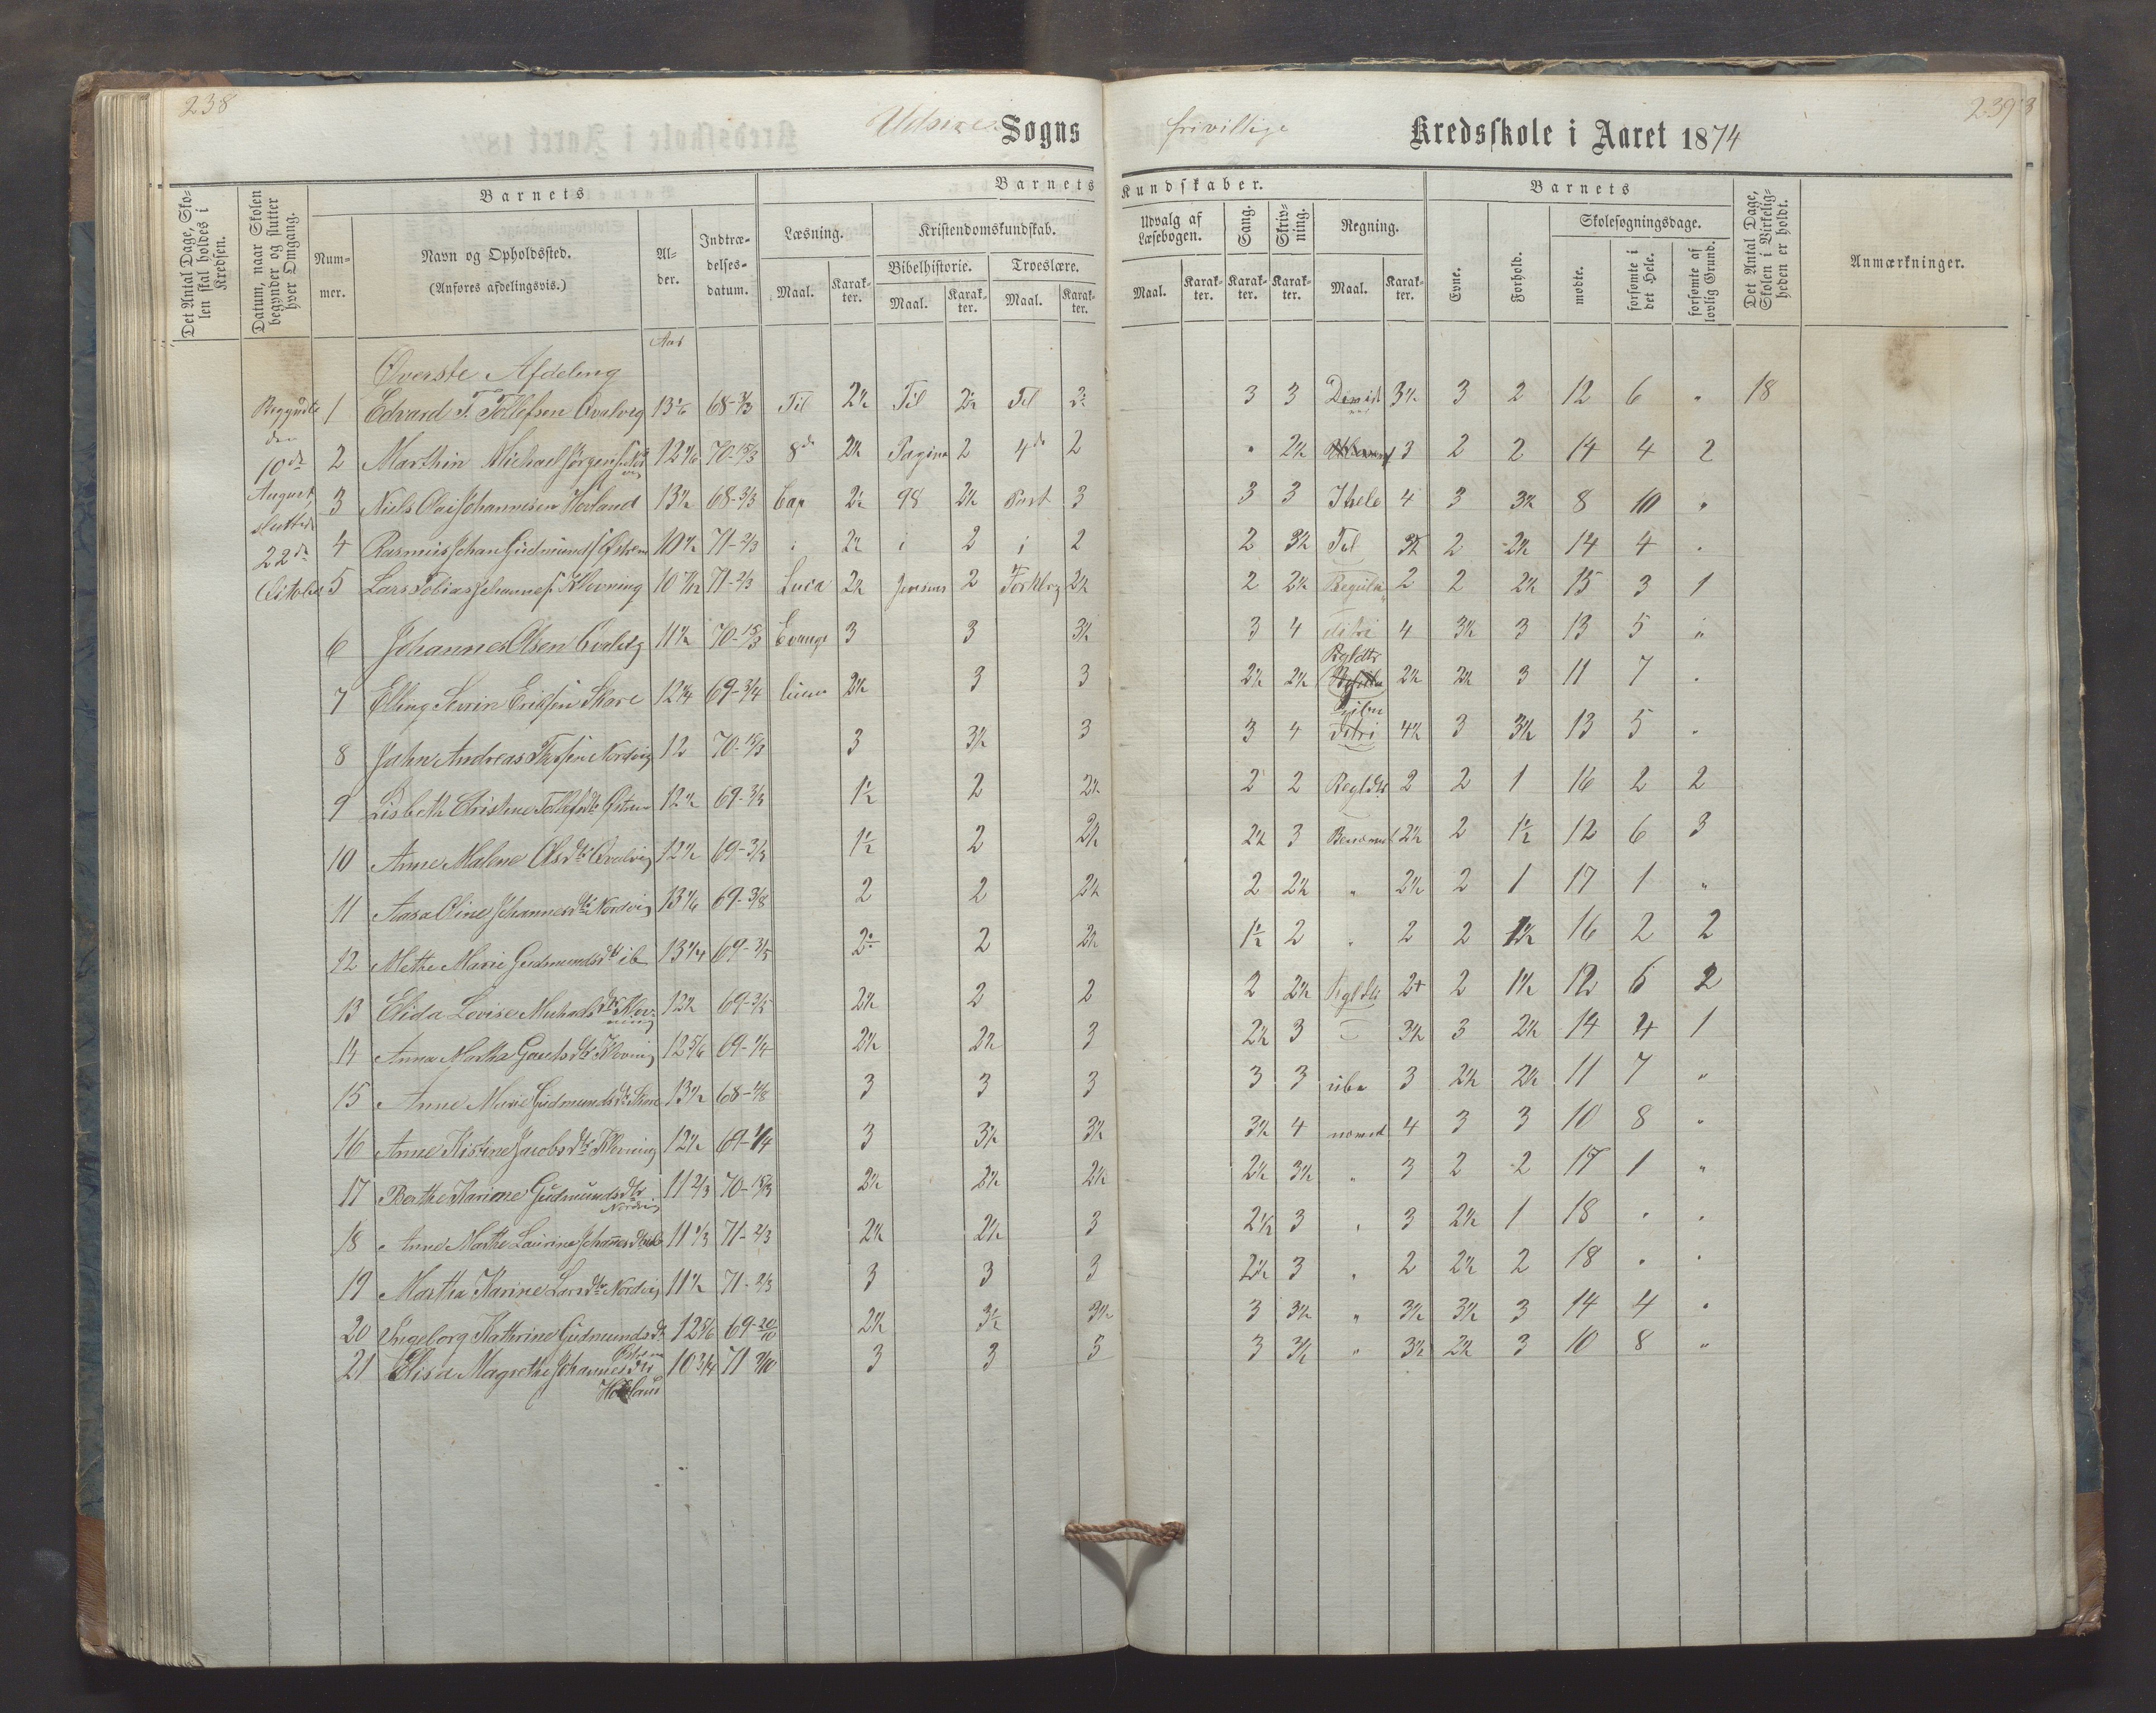 238
2393
Udsire Sogns frivillige Kredsskole i Aaret 1874
Det Antal Dage, Skolen skal holdes i Kredsen.
Datum, naar Skolen begynder og slutter hver Omgang.
Barnets
Nummer.
Navn og Opholdssted.
(Anføres afdelingsvis.)
Alder.
Indtrædelsesdatum.
Barnets Kundskaber.
Læsning.
Maal. Karakter.
Kristendomskundskab.
Bibelhistorie.
Maal. Karakter.
Troeslære.
Maal. Karakter.
Udvalg af Læsebogen.
Maal. Karakter.
Sang.
Karakter.
Skrivning.
Karakter.
Regning.
Maal. Karakter.
Barnets
Evne.
Forhold.
Skolesøgningsdage.
mødte.
forsømte i det Hele.
forsømte af lovlig Grund.
Det Antal Dage, Skolen i Virkeligheden er holdt.
Anmærkninger.
Aar
Øverste Afdeling
Begyndte den 10de August, sluttede 22de October
1 Edvard T. Tollefsen Qvalvig 68-3/3 Til 2½ Til 2½ Til 3 3 3½ 3 2 12 6 " 18
2 Marthin Michael Jørgensen 70-15/3 8de 2½ Pagina 2 4de 2 " 2½ 3 2 2 14 4 2
3 Niels Olai Johannesen Hovland 13½ 68-3/3 Cap 2½ 98 2½ Part 3 3 3 4 3 3½ 8 10 "
4 Rasmus Johan Gudmunds Østrem 10½ 71-2/3 i 2½ i 2 i 2 2 3½ Tal 3½ 2 2½ 14 4 "
5 Lars Tobias Johannes Klovning 71-2/3 Luca 2½ Jensens 2 Forklrg 2½ 2 2½ 2 2 2½ 15 3 1
6 Johannes Olsen Qvalvig 11½ 70-15/3 Evange 3 3 3½ 3 4 detri 4 3½ 3 13 5 "
7 Elling Sevrin Eriksen Skare 69-3/4 lium 2½ 3 3 2½ 2½ Rgldtr 2½ 2½ 3 11 7 "
8 John Andreas Thorsen Nordvig 12 70-15/3 3 3½ 3 3 4 detri 4½ 3 3½ 13 5 "
9 Lisbeth Christine Tollefsdtr Østrem 12½ 69-3/3 1½ 2 2½ 2 2 Regldtr 2 2 1 16 2 2
10 Anne Malene Olsdtr Qvalvig 12½ 69-3/3 1½ 2 2½ 2½ 3 Benævnt 2½ 2 1½ 12 6 3
11 Aasa Oline Johannesdtr Nordvig 69-3/8 2 2 2½ 2 2½ " 2½ 2 1 17 1 "
12 Methe Marie Gudmundsdtr ib 69-3/5 2 2 2½ 1½ 2 " 2 2 1½ 16 2 2
13 Elida Lovise Michaelsdtr Klovning 12½ 69-3/5 2½ 2 2 2 2½ Rgldtr 2+ 2 1½ 12 6 2
14 Anna Martha Gautsdtr Klovning 12 5/6 69-1/4 2½ 2½ 3 2½ 3 3½ 3 2½ 14 4 1
15 Anne Marie Gudmundsdtr Skare 13½ 3 3 3 3 3 ube 3 2½ 2½ 11 7 "
16 Anne Kistine Jacobsdtr Klovning 12½ 69-1/4 3 3½ 3½ 3½ 4 nævnt 4 3 3 10 8 "
17 Berthe Karine Gudmundsdtr Nordvig 11 2/3 70-15/3 2½ 2½ 2½ 2½ 3½ " 3 2 2 17 1 "
18 Anne Marthe Laurine Johannesdtr 11 1/3 71-2/3 2½ 2½ 3 2½ 3 " 3 2½ 1 18 " "
19 Martha Karine Larsdtr Nordvig 11½ 71-2/3 3 3 3 2½ 3 " 2 2½ 2 18 " "
20 Ingeborg Kathrine Gudmundsdtr Østrem 12 5/6 69-20/10 2½ 3½ 3½ 3 3½ " 3½ 3½ 3 14 4 "
21 Elisa Magrethe Johannesdtr Hovland 10 3/4 3 3 3 3 3½ " 3½ 2½ 3 10 8 "